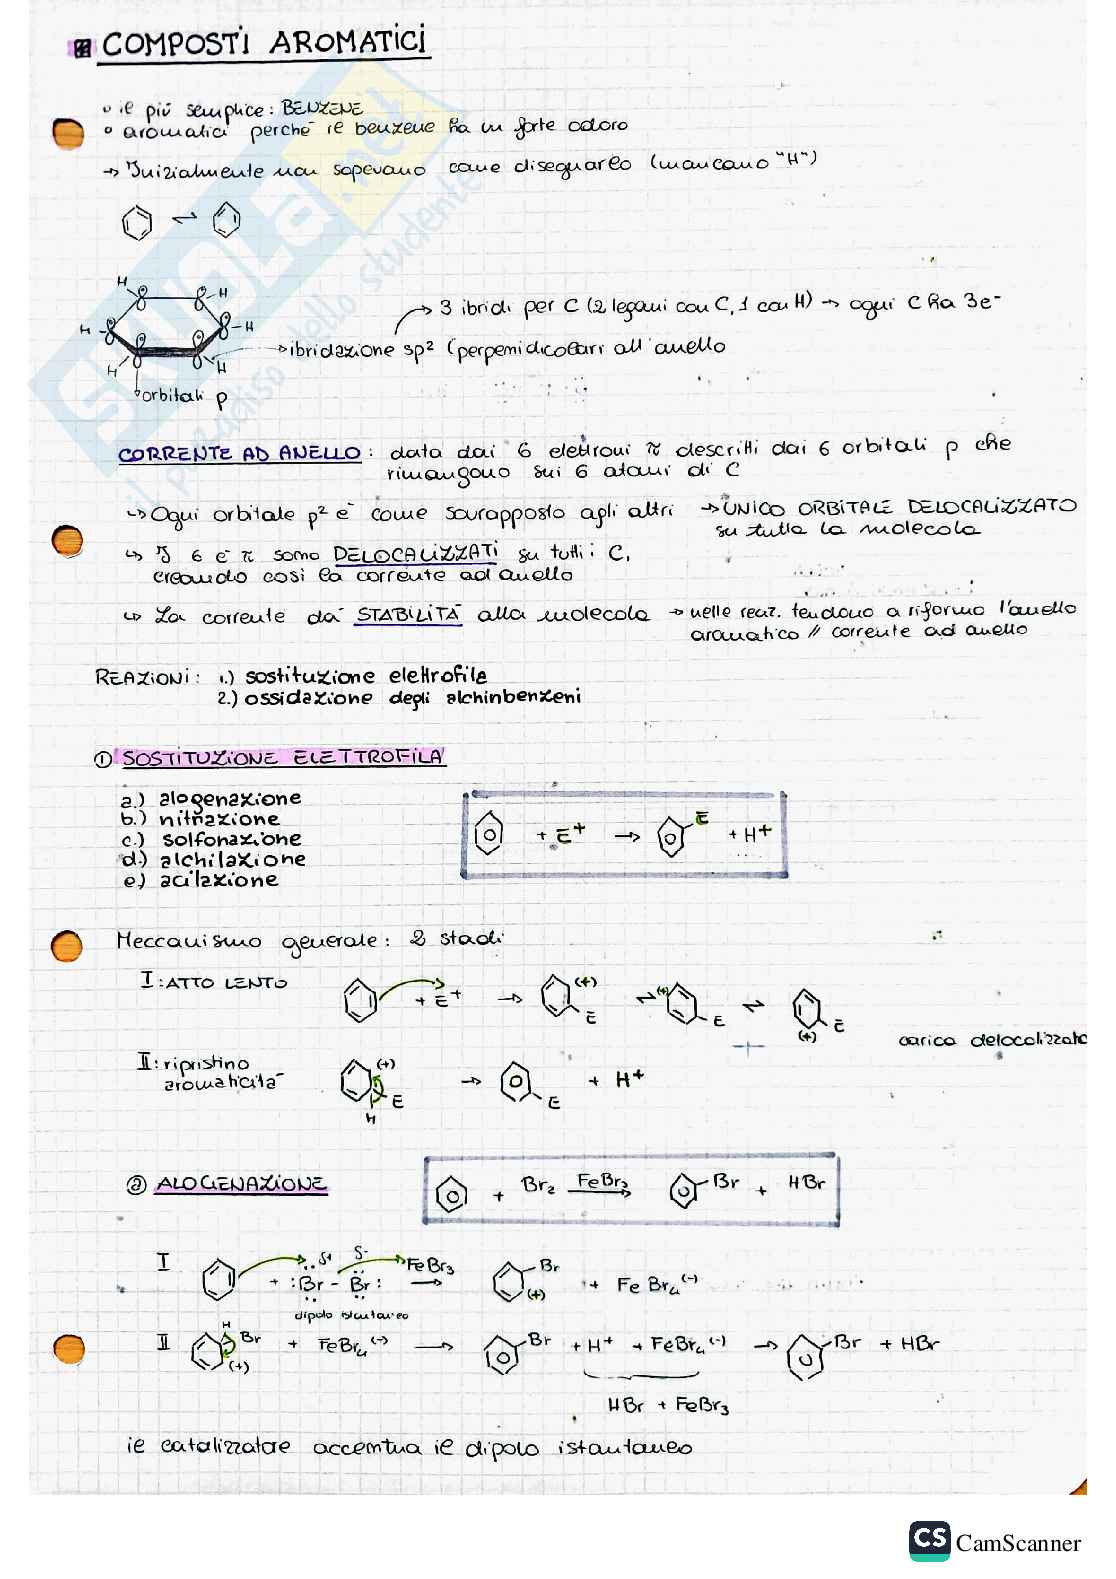 COMPOSTI AROMATICI
il più semplice: BENZENE
aromatici perché il benzene ha un forte odoro
→ Inizialmente non sapevano come disegnareo (mancano "H")
⇌
H H H H H H
→ 3 ibridi per C (2 legami con C, 1 con H) → ogni C ha 3e⁻
→ ibridazione sp² (perpendicolari all'anello
orbitali p
CORRENTE AD ANELLO: data dai 6 elettroni π descritti dai 6 orbitali p che
rimangono sui 6 atomi di C
↳ Ogni orbitale p² è come sovrapposto agli altri → UNICO ORBITALE DELOCALIZZATO
su tutta la molecola
↳ I 6 e⁻ π sono DELOCALIZZATI su tutti i C,
creando così la corrente ad anello
↳ La corrente dà STABILITÀ alla molecola → nelle reaz. tendono a riformo l'anello
aromatico // corrente ad anello
REAZIONI: 1.) sostituzione elettrofila
2.) ossidazione degli alchinbenzeni
① SOSTITUZIONE ELETTROFILA
a.) alogenazione
b.) nitrazione
c.) solfonazione
d.) alchilazione
e.) acilazione
+ E⁺ → E + H⁺
Meccanismo generale: 2 stadi
I: ATTO LENTO + E⁺ → (+) E ⇌ (+) E ⇌ (+) E
carica delocalizzata
II: ripristino
aromaticità
(+) E H → E + H⁺
ⓐ ALOGENAZIONE
+ Br₂ FeBr₃ → Br + HBr
I + :Br - Br: δ+ δ- FeBr₃ → Br (+) + FeBr₄⁽⁻⁾
dipolo istantaneo
II H Br (+) + FeBr₄⁽⁻⁾ → Br + H⁺ + FeBr₄⁽⁻⁾ → Br + HBr
HBr + FeBr₃
il catalizzatore accentua il dipolo istantaneo
SKUOLA.net
il paradiso dello studente
CS CamScanner